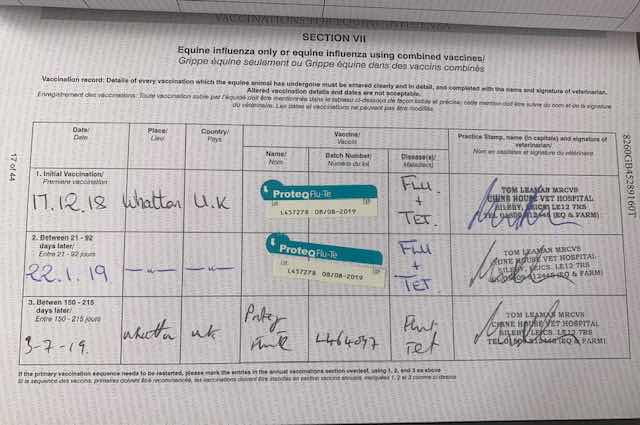 VACCINATIONS FOR EQUINE INFLUENZA
SECTION VII
Equine influenza only or equine influenza using combined vaccines/
Grippe équine seulement ou Grippe équine dans des vaccins combinés
Vaccination record: Details of every vaccination which the equine animal has undergone must be entered clearly and in detail, and completed with the name and signature of veterinarian.
Altered vaccination details and dates are not acceptable.
Enregistrement des vaccinations: Toute vaccination subie par l'équidé doit être mentionnée dans le tableau ci-dessous de façon lisible et précise; cette mention doit être suivie du nom et de la signature
du vétérinaire. Les dates et vaccinations ne peuvent pas être modifiés.
Date/
Date
Place/
Lieu
Country/
Pays
Vaccine/
Vaccin
Name/
Nom
Batch Number/
Numéro du lot
Disease(s)/
Maladie(s)
Practice Stamp, name (in capitals) and signature of
veterinarian/
Nom en capitales et signature du vétérinaire
1. Initial Vaccination/
Première vaccination
17.12.18
Whatton
U.K
ProteqFlu-Te
L457278 08/08-2019
FLU
+
TET.
TOM LEAMAN MRCVS
CHINE HOUSE VET HOSPITAL
SILEBY, LEICS. LE12 7RS
TEL 01509 812445 (EQ & FARM)
2. Between 21 - 92
days later/
Entre 21 - 92 jours
22.1.19
—"—
—"—
ProteqFlu-Te
L457278 08/08-2019
FLU
+
TET
TOM LEAMAN MRCVS
CHINE HOUSE VET HOSPITAL
SILEBY, LEICS. LE12 7RS
TEL 01509 812445 (EQ & FARM)
3. Betwen 150 - 215
days later/
Entre 150 - 215 jours
3-7-19.
Whatton
UK
Proteq
L464047
Tet
TOM LEAMAN MRCVS
CHINE HOUSE VET HOSPITAL
SILEBY, LEICS. LE12 7RS
TEL 01509 812445 (EQ & FARM)
If the primary vaccination sequence needs to be restarted, please mark the entries in the annual vaccinations section overleaf, using 1, 2, and 3 as above
Si la séquence des vaccins, primaires doivent être recommancée, les vaccinations doivent être inscrites en section vaccins annuels, marquées 1, 2 et 3 comme ci-dessus
17 of 44